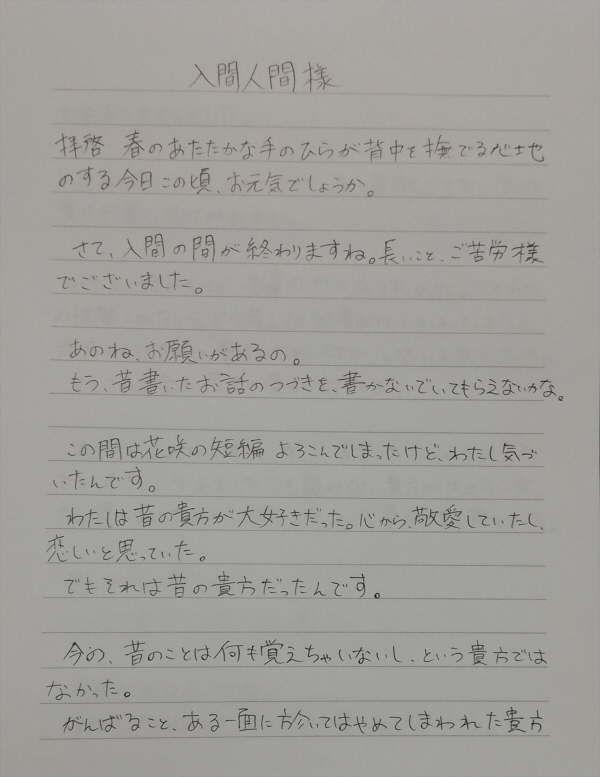 入間人間様
拝啓 春のあたたかな手のひらが背中を撫でる心地
のする今日この頃、お元気でしょうか。
さて、入間の間が終わりますね。長いこと、ご苦労様
でございました。
あのね、お願いがあるの。
もう、昔書いたお話のつづきを、書かないでいてもらえないかな。
この間は花咲の短編よろこんでしまったけど、わたし気づ
いたんです。
わたしは昔の貴方が大好きだった。心から、敬愛していたし、
恋しいと思っていた。
でもそれは昔の貴方だったんです。
今の、昔のことは何も覚えちゃいないし、という貴方では
なかった。
がんばること、ある一面に於いてはやめてしまわれた貴方